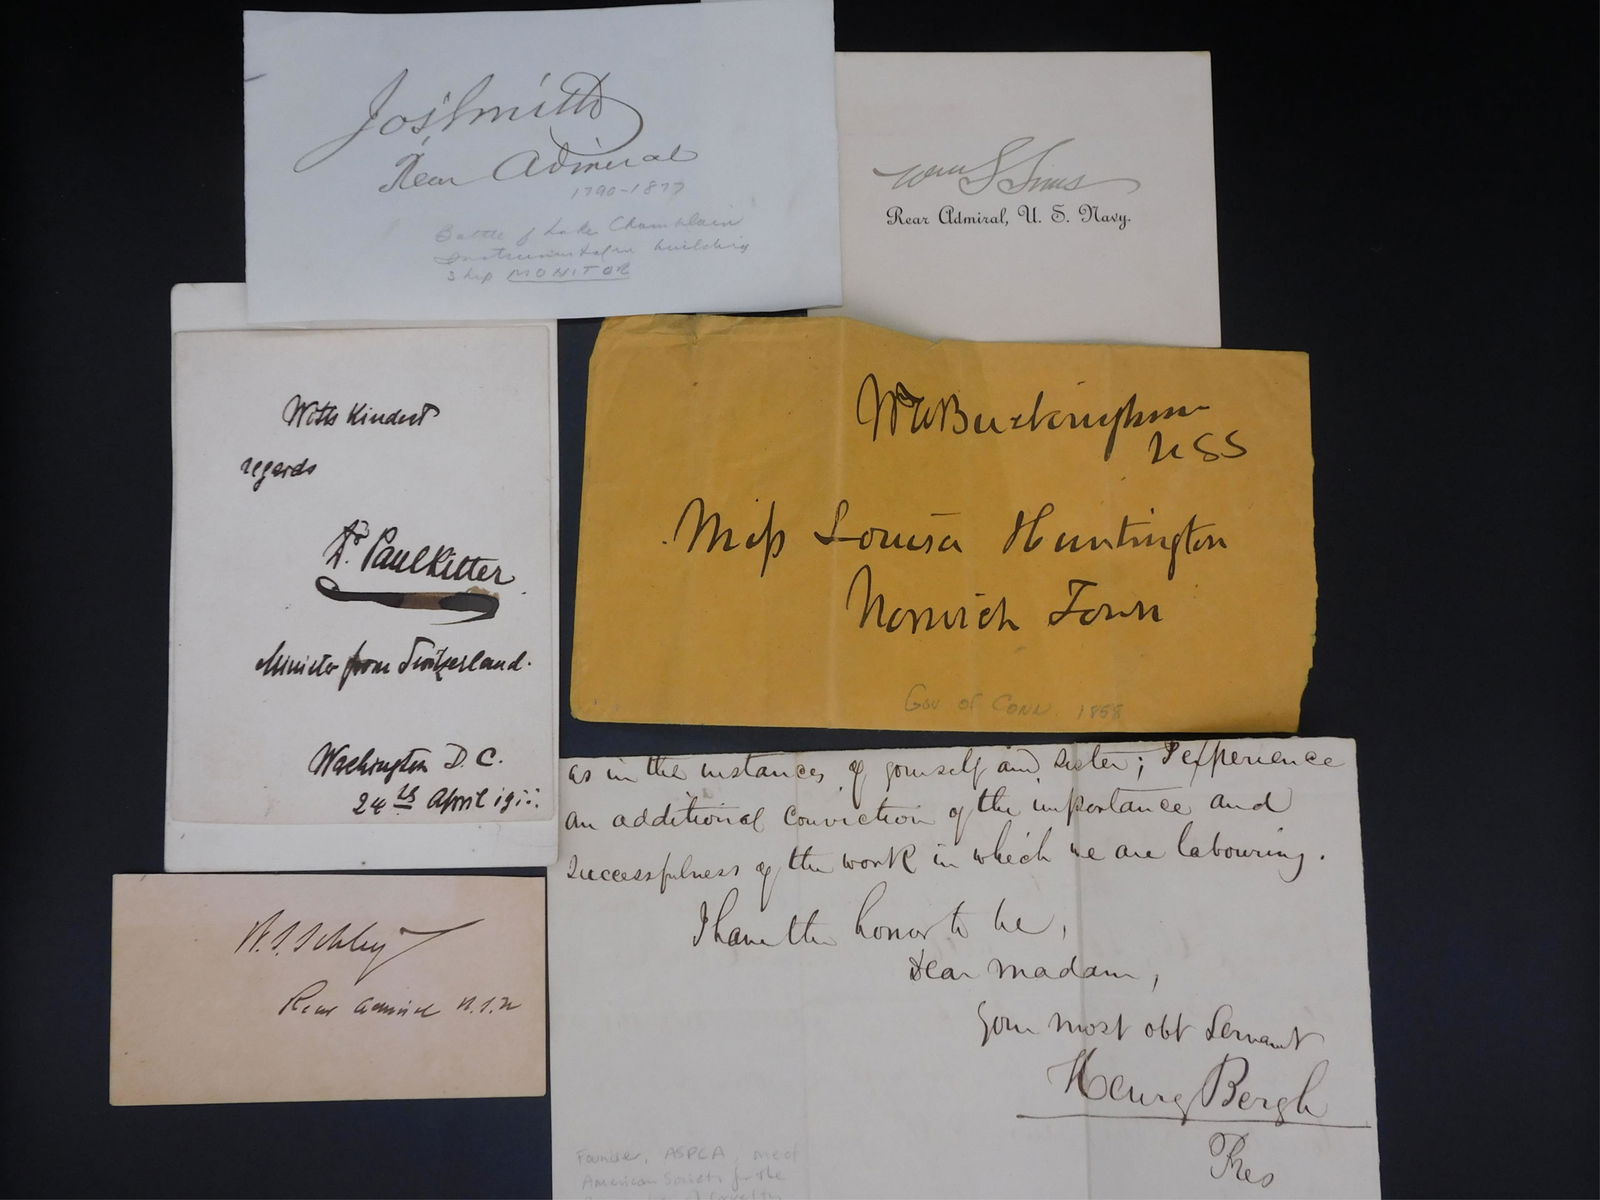 Jos Smith
Rear Admiral
1790-1877
Battle of Lake Champlain
instrumental in building
ship MONITOR
Wm S Sims
Rear Admiral, U. S. Navy.
With kindest
regards
Dr. Paul Ritter
Minister from Switzerland.
Washington D. C.
24th April 1911.
Wm A Buckingham
USS
Miss Louisa Huntington
Norwich Town
Gov of Conn. 1858
W. S. Schley
Rear Admiral U.S.N
as in the instances of yourself and sister; I experience
an additional conviction of the importance and
successfulness of the work in which we are labouring.
I have the honor to be,
Dear Madam,
Your most obt Servant
Henry Bergh
Pres
Founder, ASPCA,
American Society for the
of Cruelty